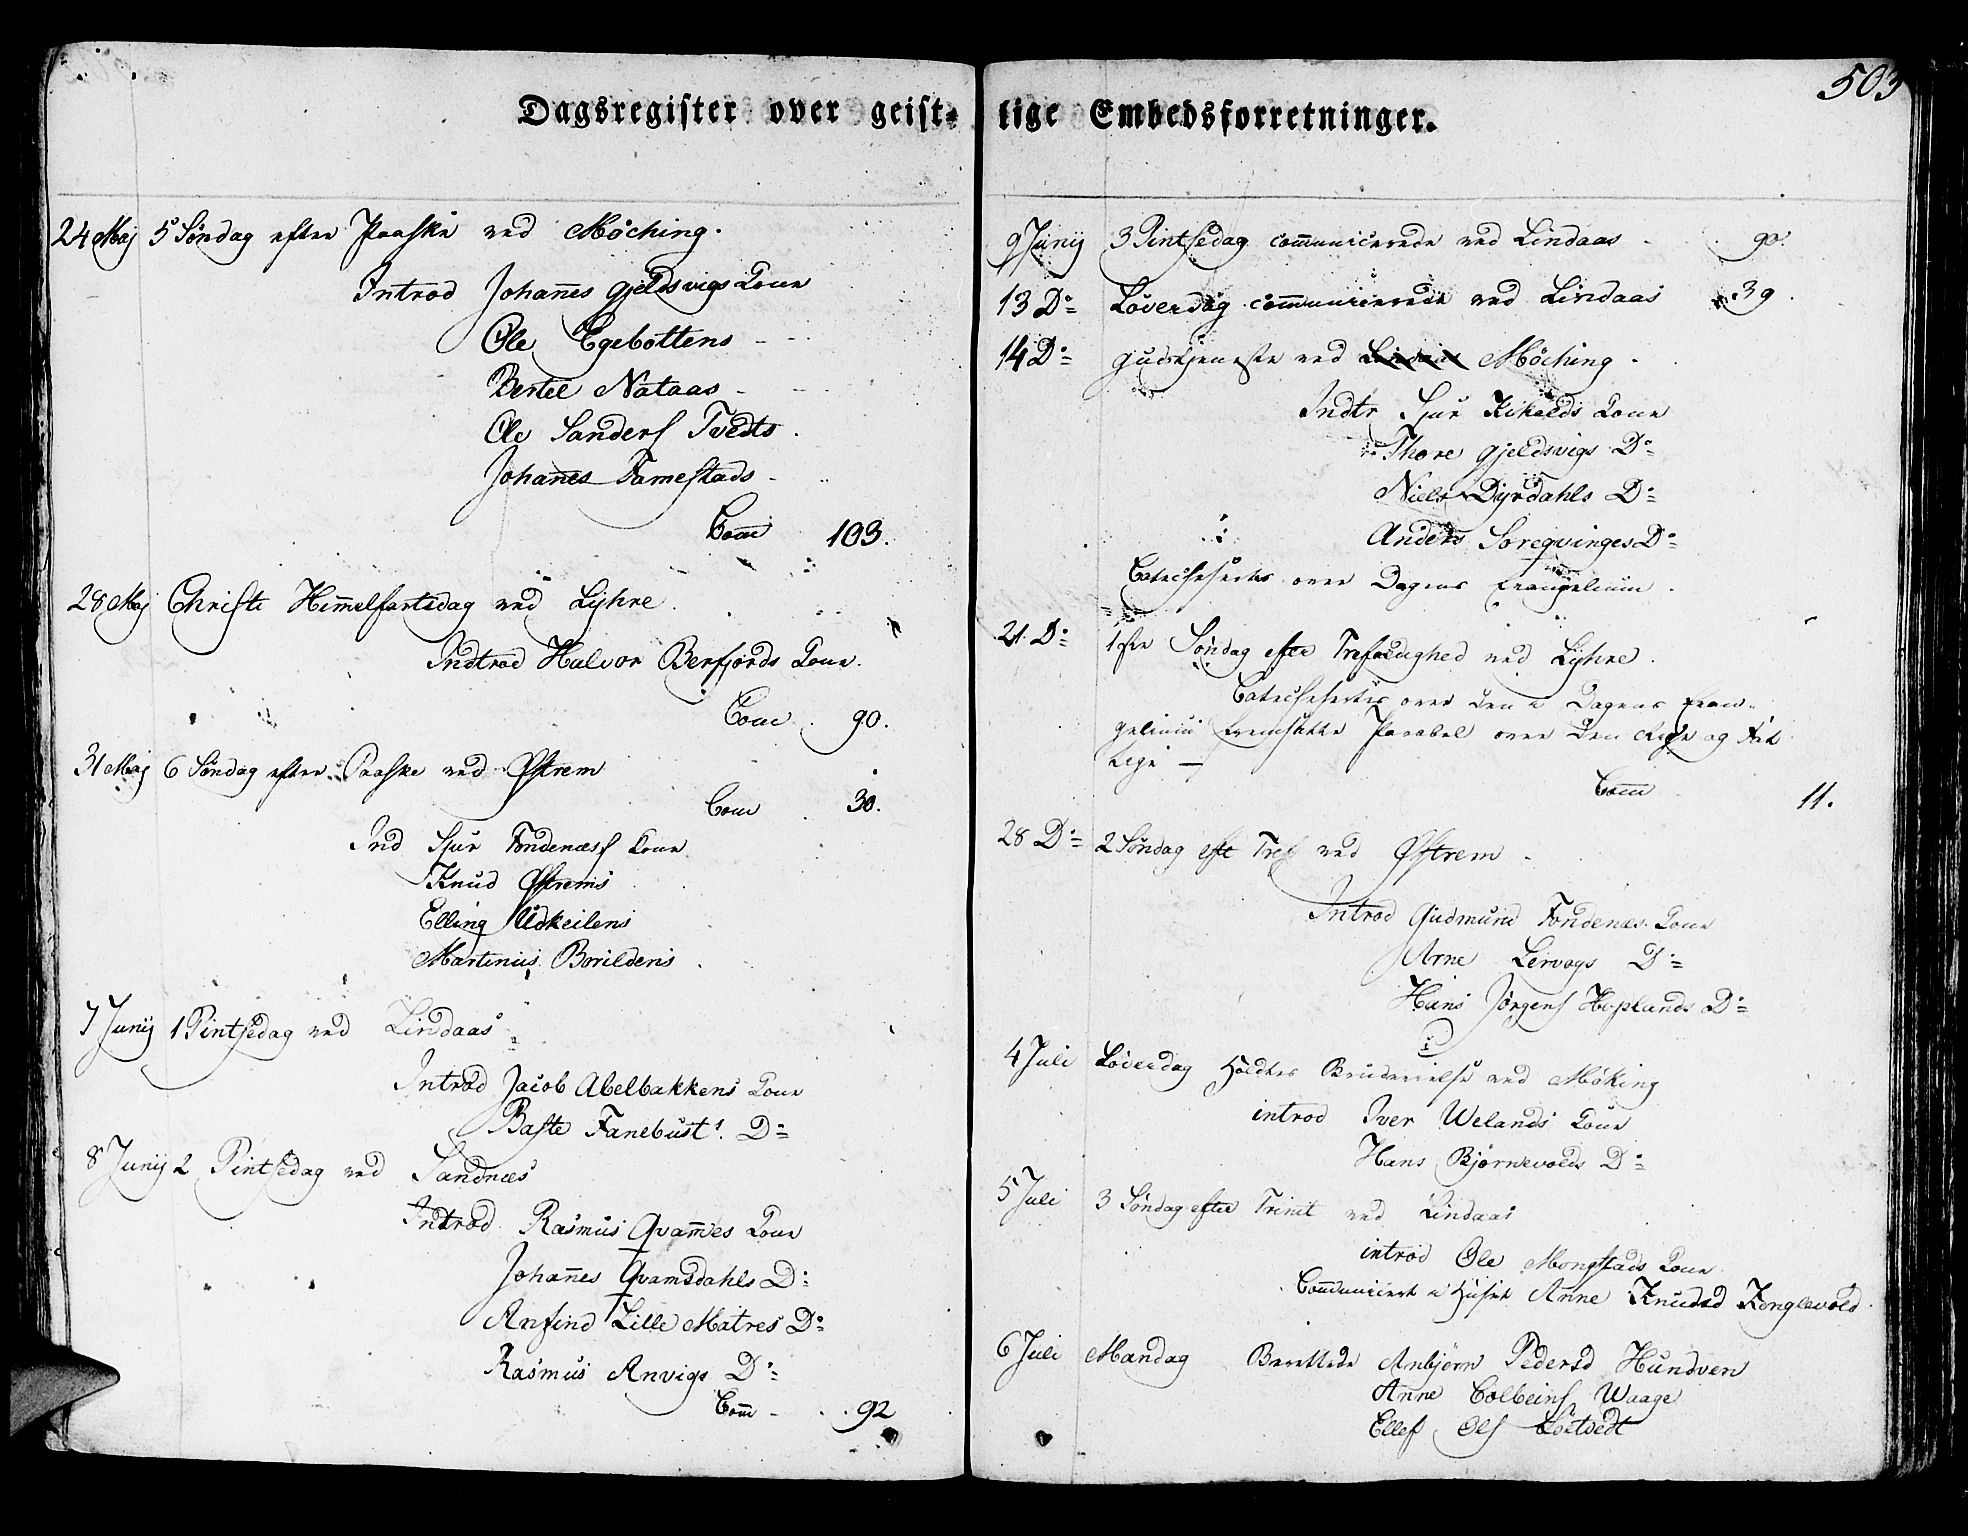 503
Dagsregister over geist-lige Embedsforretninger.
24 Maj 5 Søndag efter Paaske ved Møching.
Introd Johan̄es Gjeldsvigs Kone
Ole Egebottens
Bertel Nataas
Ole Sanders Tvedts
Johan̄es Famestads
Com̄ 103.
28 Maj Christi Him̄elfartsdag ved Lyhre.
Indtrod Halvor Berfjords Kone.
Com̄ 90.
31 Maj 6 Søndag efter Paaske ved Østrem
Com̄ 30.
Ind Sjur Fondenæss Kone
Knud Østrems
Elling Udkeilens
Martinus Borildens
7 Junij 1 Pintsedag ved Lindaas
Introd Jacob Abelbakkens Kone
Baste Fanebust's D:=
8 Junij 2 Pintsedag ved Sandnæs
Introd Rasmus Qvam̄es Kone
Johan̄es Qvamsdahls D:=
Anfind Lille Matres D:=
Rasmus Anvigs D:=
Com̄ 92
9 Junij 3 Pintsedag com̄unicerede ved Lindaas 90.
13 D:= Løverdag com̄unicerede ved Lindaas 39.
14 D:= Gudstjeneste ved Lindaas Møching
Indtr Sjur Kiholds Kone
Thore Gjeldsvigs D:=
Niels Dyrdahls D:=
Anders Soreqvinges D:=
Catechisertes over Dagens Evangelium.
21. D:= 1ste Søndag efter Trefoldighed ved Lyhre.
Catechisertes over den i Dagens Evan-
gelium fremsatte Parabel over den Rige og Fat
tige —
Com̄ 11.
28 D:= 2 Søndag eft Tref ved Østrem
Introd Gudmund Fondenæs Kone
Arne Lervags D:=
Hans Jørgens Hoplands D:=
4 Juli Løverdag holdtes Brudevielse ved Møking
introd Iver Welands Kone
Hans Bjørnevolds D:=
5 Juli 3 Søndag efter Trinit ved Lindaas
introd Ole Mongstads Kone
Com̄unicert i Huset Anne Knudsd Konglevold.
6 Juli Mandag Berettede Anbjørn Pedersd Hundven
Anne Colbeins Waage
Ellef Ols